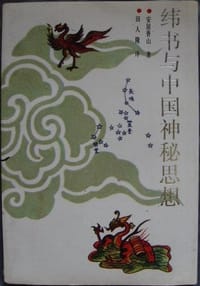 纬书与中国神秘思想
●安居香山 著
●田人隆 译